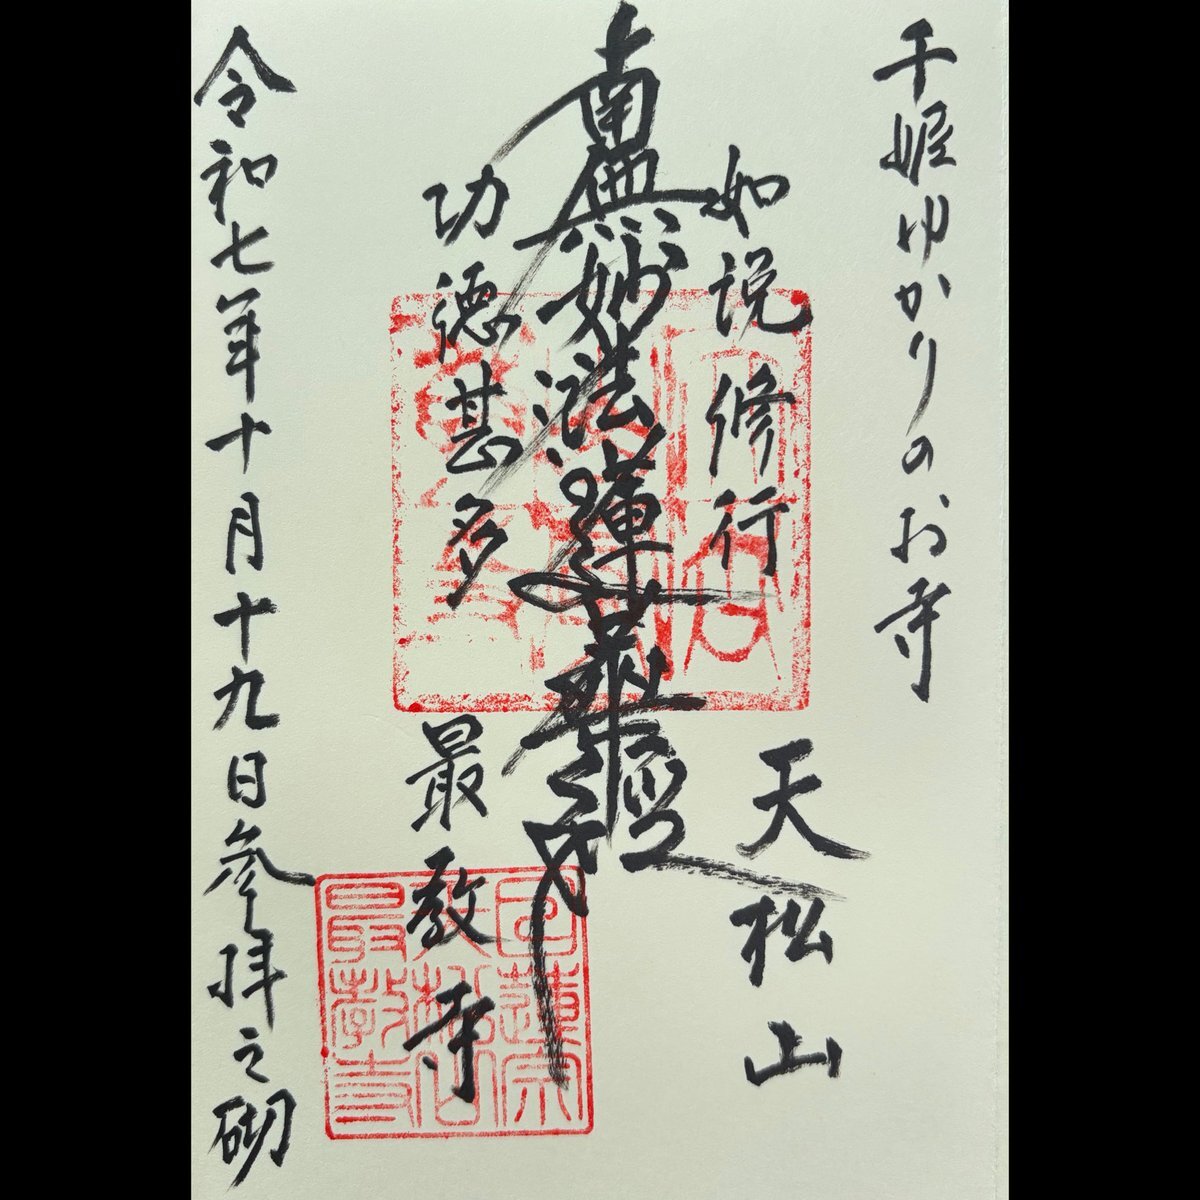 千姫ゆかりのお寺
如説修行
天松山
南無妙法蓮華經
功徳甚多
最教寺
令和七年十月十九日参拝之砌
日蓮宗
天松山
最教寺